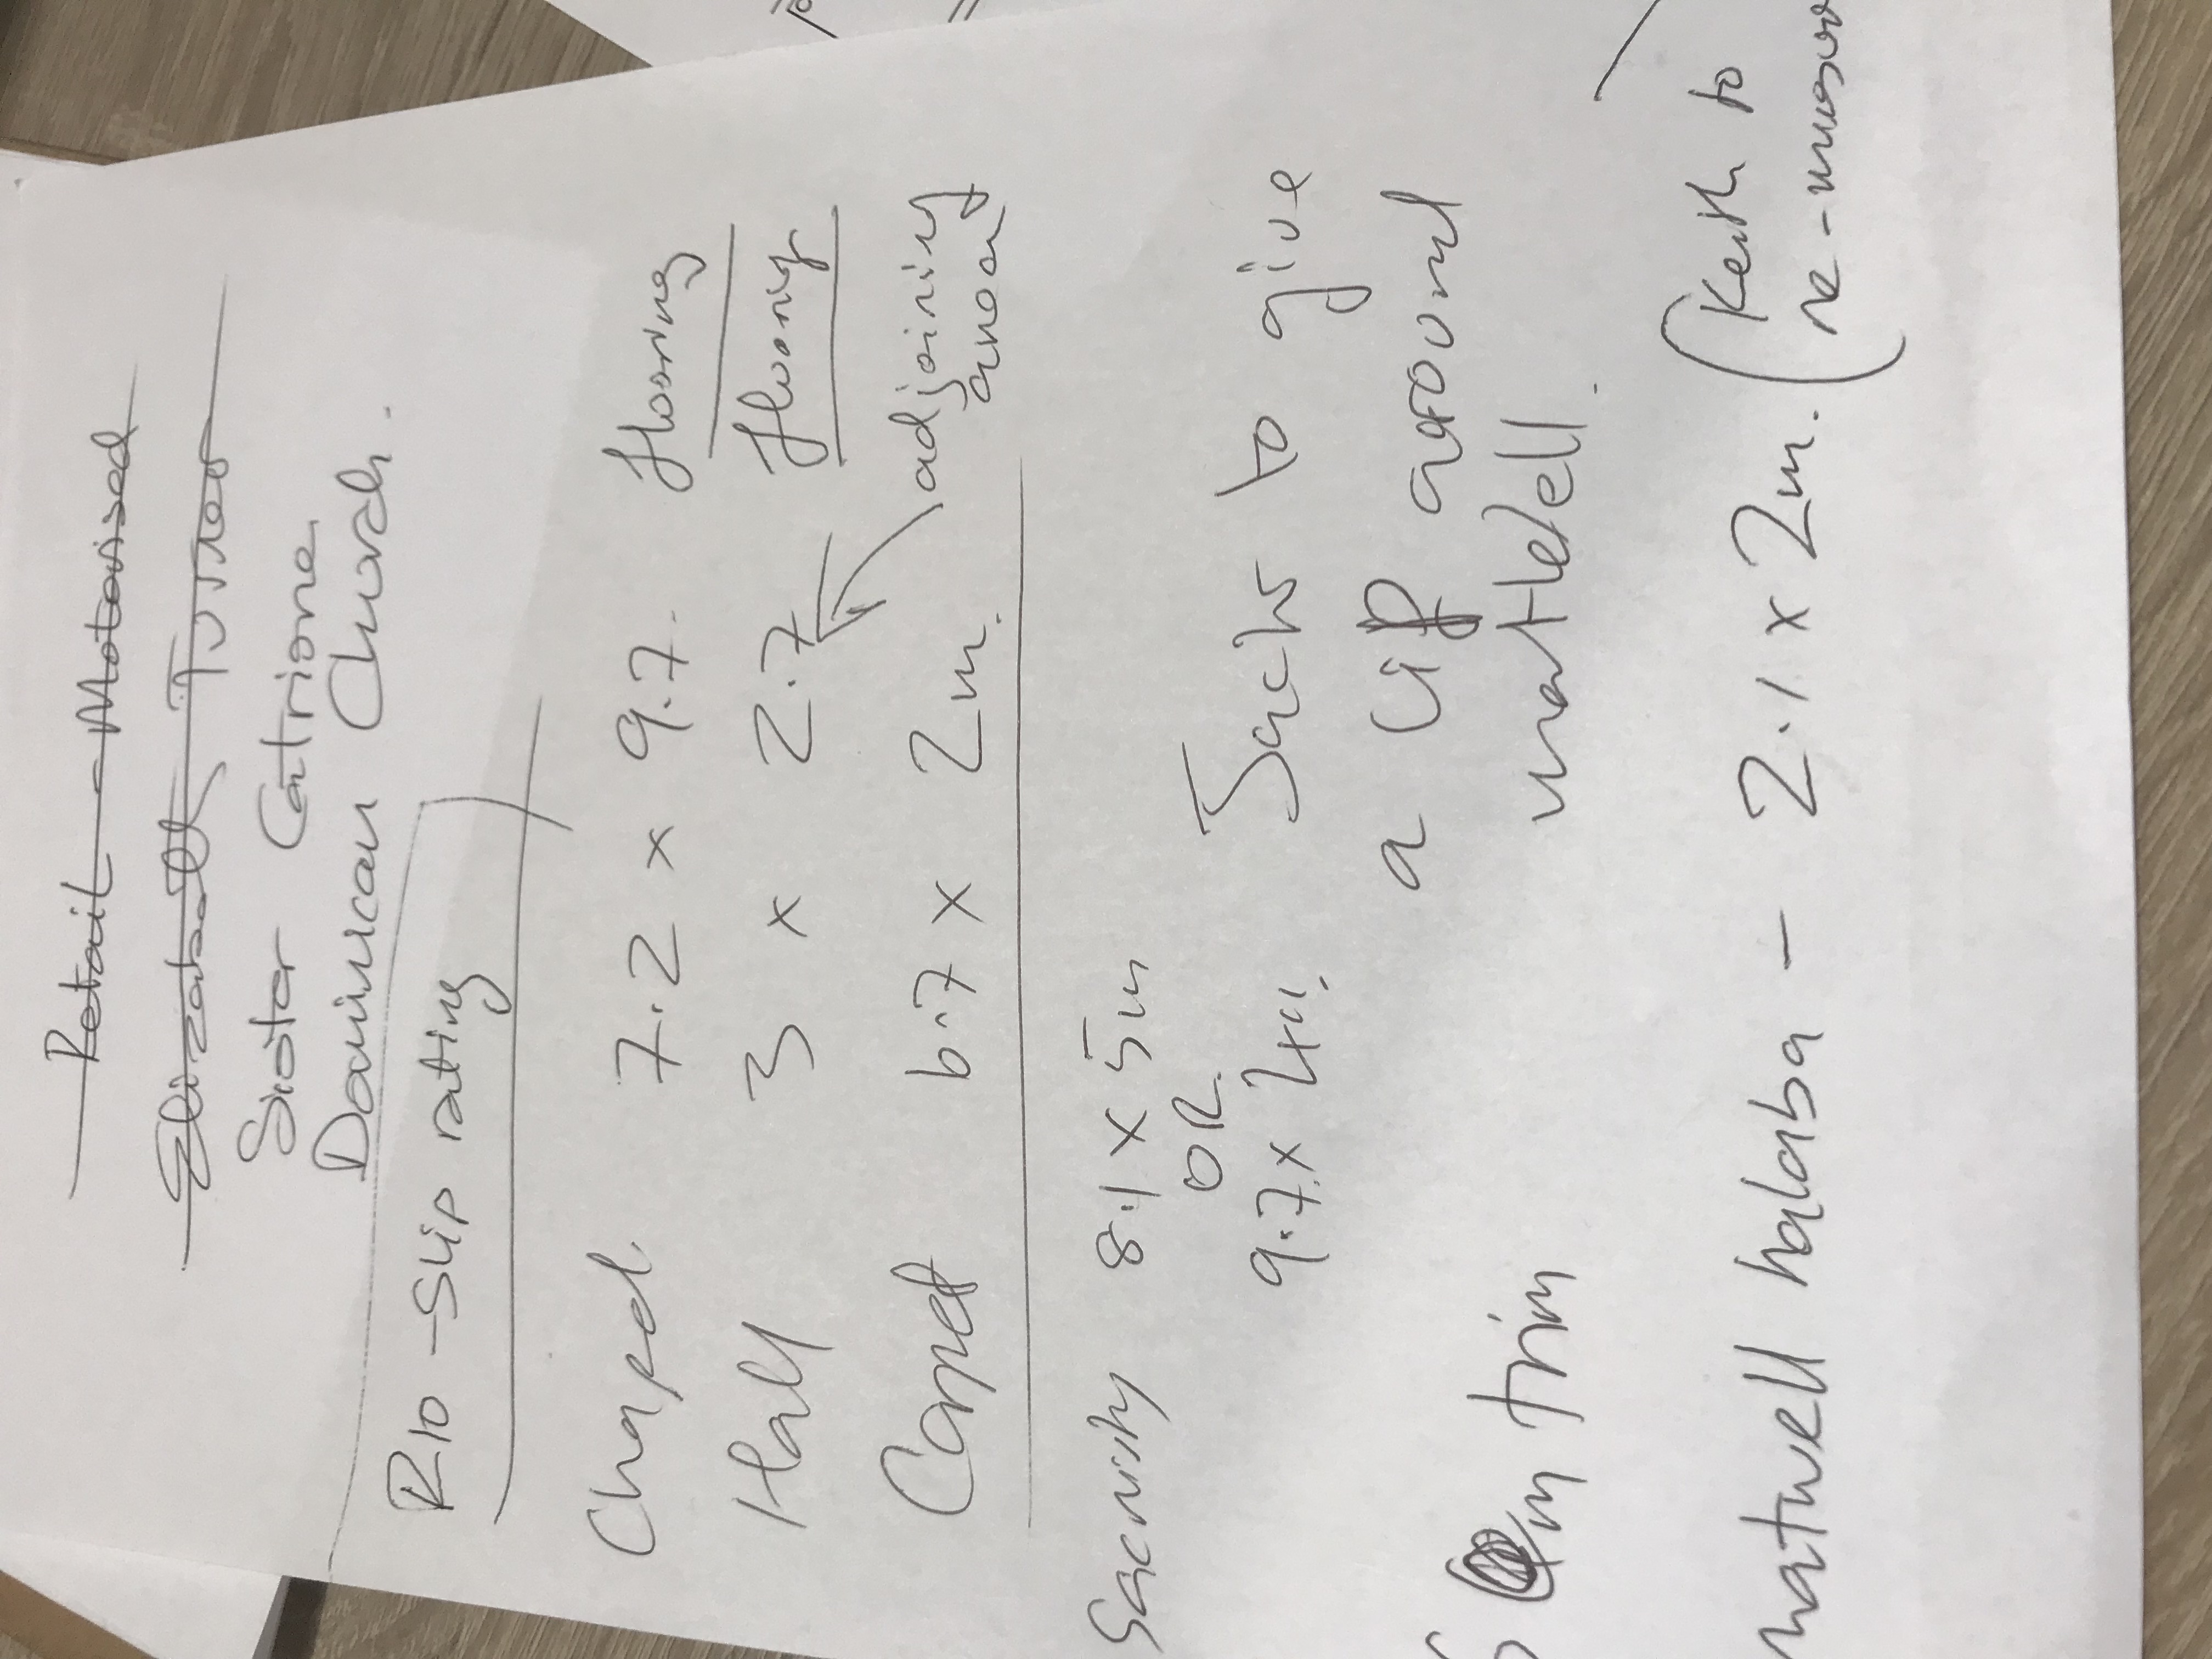 Retail - Motorised
Elizabeth Turner
Sister Catriona
Dominican Church.
R10 - Slip rating
Chapel. 7.2 x 9.7. flooring
Hall 3 x 2.7 flooring
adjoining
area
Carpet 6.7 x 2m.
Sacristy 8.1 x 5m
OR
9.7 x 4m.
Jack to give
a Lip around
matwell.
m trim
matwell halaba - 2.1 x 2m. (Keith to